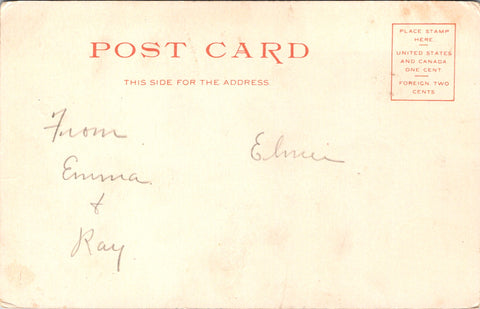 POST CARD
THIS SIDE FOR THE ADDRESS
PLACE STAMP
HERE
UNITED STATES
AND CANADA
ONE CENT
FOREIGN TWO
CENTS
From
Emma
&
Ray